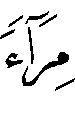 مِرَآءً